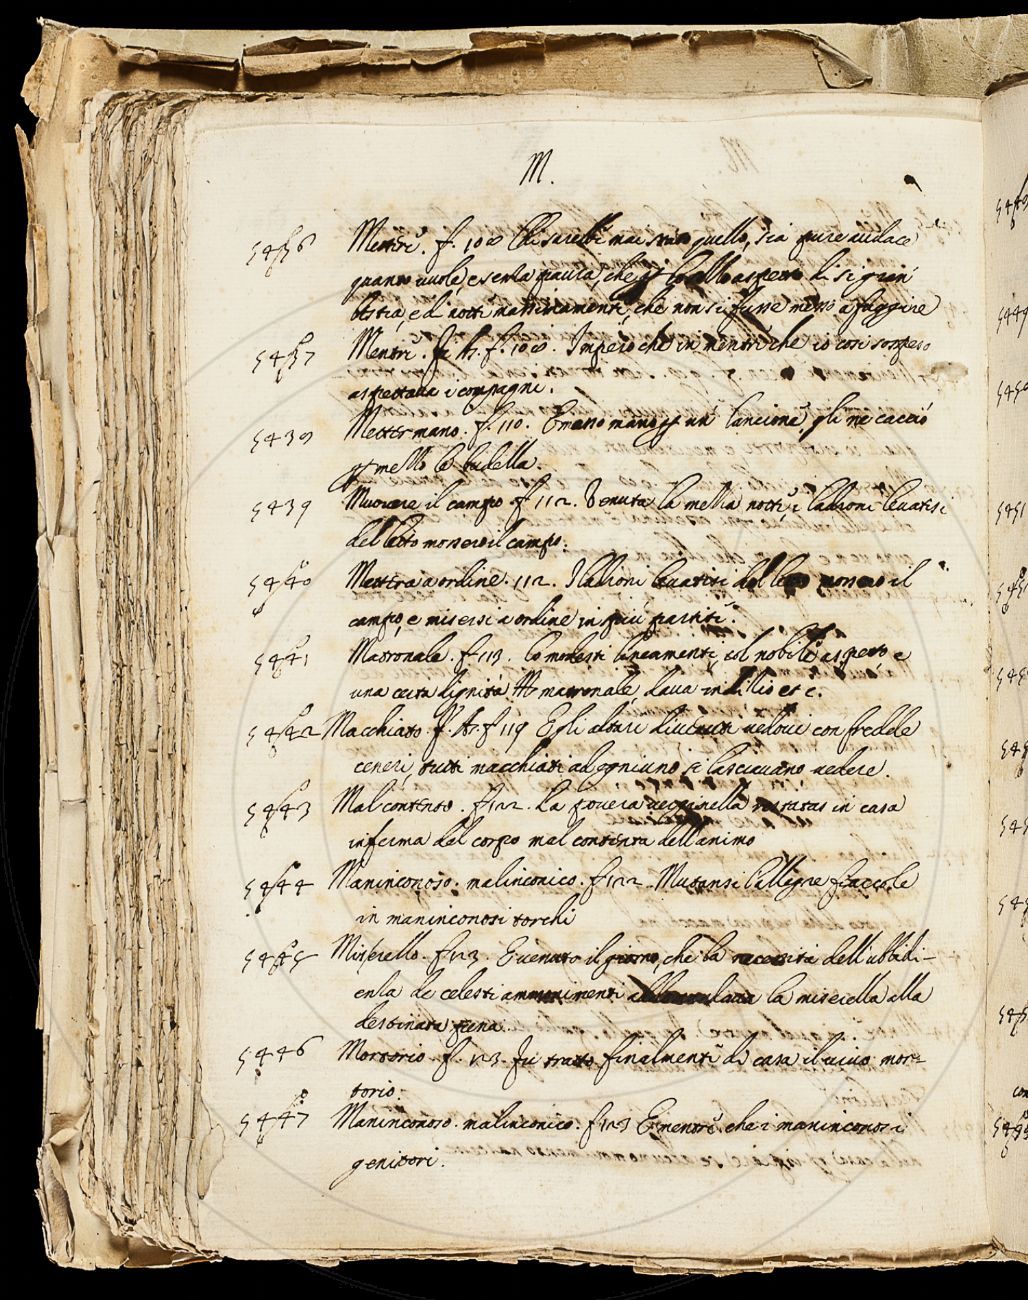 M.
5436 Mentre. f. 108 Chi sarebbe mai stato quello, sia pure audace
quanto vuole, e senza paura, che allo aspetto di sì gran
bestia, e di notte massimamente, che non si fusse messo a fuggire
5437 Mentre. f. 108. Imperò che in mentre che io così sospeso
aspettava i compagni.
5438 Metter mano. f. 110. E messo mano p un lancione, gli ne cacciò
p mezzo le budella.
5439 Muovere il campo f. 112. Venuta la mezza notte, i ladroni levatisi
del letto mossero il campo.
5440 Mettersi a ordine. 112. I ladroni levatisi del letto mossero il
campo, e misersi a ordine in più partite.
5441 Matronale. f 113. Co modesti lineamenti, col nobile aspetto e
una certa dignità matronale, dava indizio etc.
5442 Macchiato. f 119 E gli altari divenuti vedovi con fredde
ceneri, tutti macchiati ad ogniuno si lasciavano vedere.
5443 Mal contento. f 122. La povera restatasi in casa
inferma del corpo mal contenta dell'animo
5444 Maninconoso. malinconico. f 122. Mutansi l'allegre fiaccole
in maninconosi torchi
5445 Miserello. f 123. E venuto il giorno, che la necessità dell'ubbidi-
enza de celesti ammonimenti la miserella alla
destinata pena.
5446 Mortorio. f. 123. Fu tratto finalmente di casa il vivo mor-
torio.
5447 Maninconoso. malinconico. f 123 E mentre che i maninconosi
genitori.